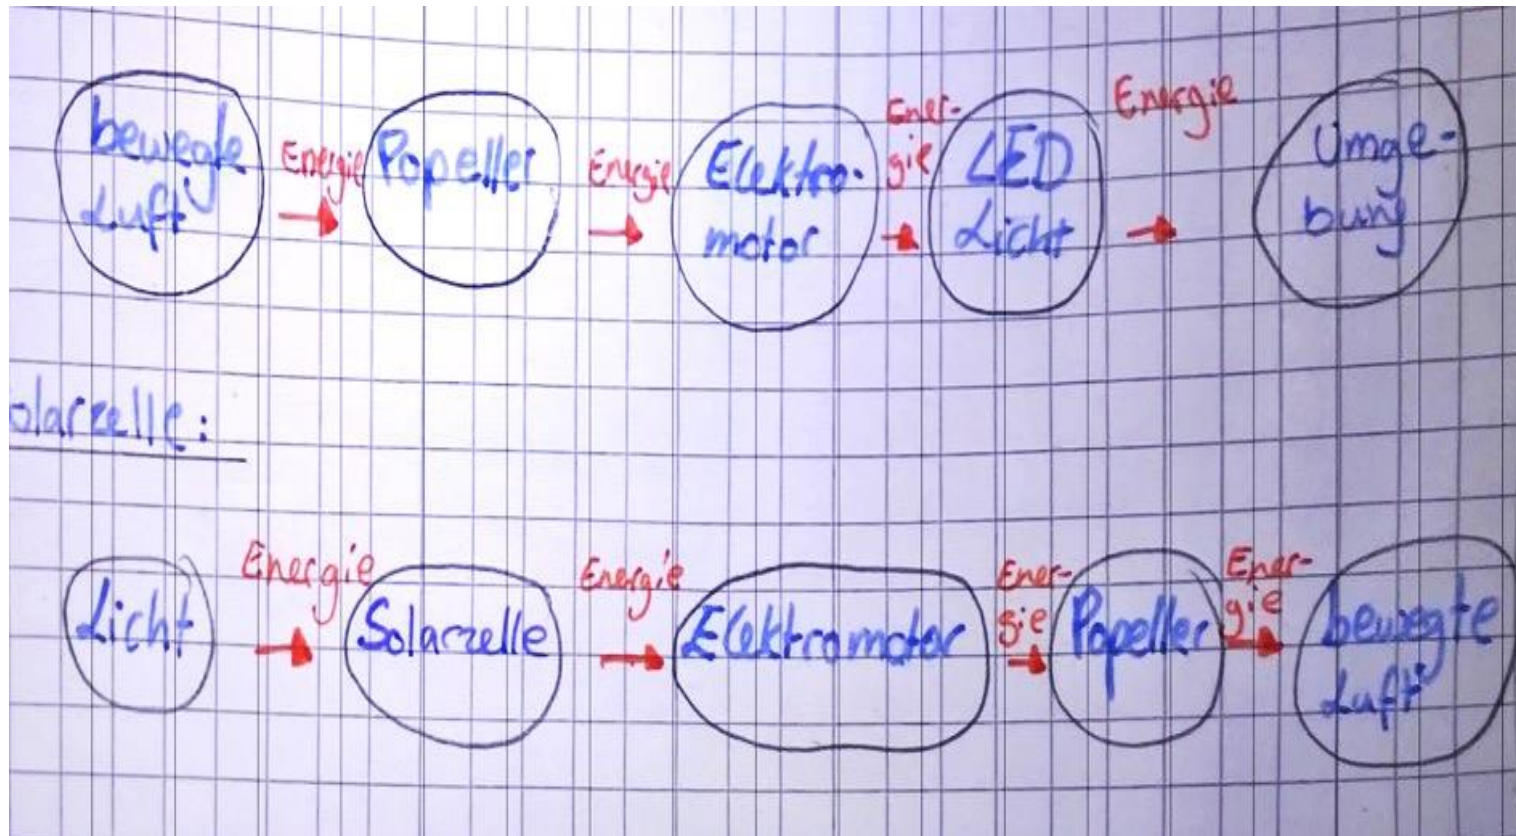 bewegte
Luft
Energie
Popeller
Energie
Elektro-
motor
Ener-
gie
LED
Licht
Energie
Umge-
bung
olarzelle:
Licht
Energie
Solarzelle
Energie
Elektromotor
Ener-
gie
Popeller
Ener-
gie
bewegte
Luft